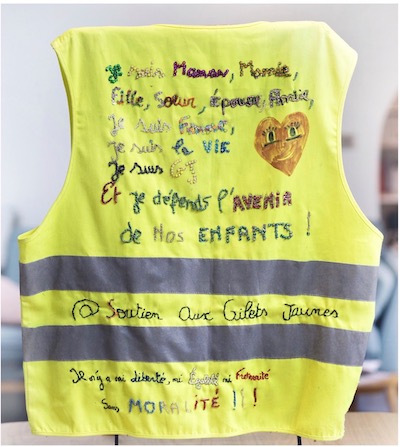 Je suis Maman, Mamie,
Fille, Soeur, épouse, Amie,
Je suis Femme,
je suis la VIE
Je suis GJ
Et je dépends l'AVENIR
de Nos ENFANTS !
@ Soutien Aux Gilets Jaunes
Il n'y a ni Liberté, ni Égalité ni Fraternité
Sans MORALITÉ !! !